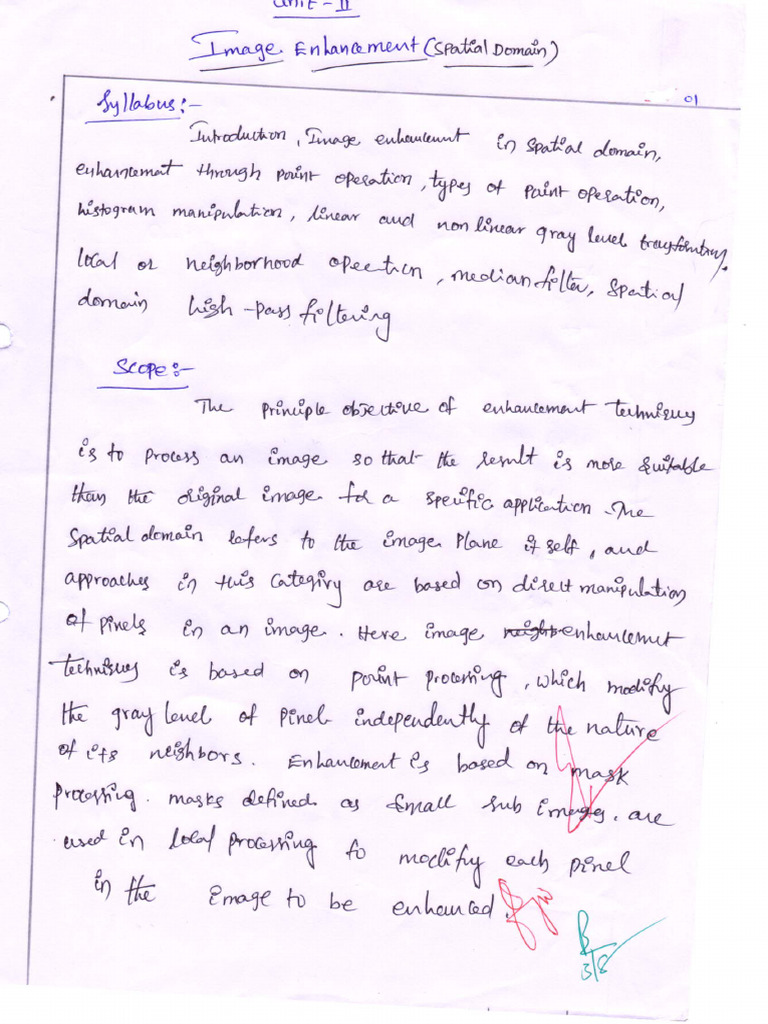 Unit - II
Image Enhancement (Spatial Domain)
01
Syllabus:-
Introduction, Image enhancement in spatial domain,
enhancement through point operation, types of point operation,
histogram manipulation, linear and non linear gray level
local or neighborhood opeection, median filter, Spatial
domain high-pass filtering
Scope:-
The principle objective of enhancement techniques
is to process an image so that the result is more suitable
than the original image for a specific application. The
Spatial domain refers to the image plane it self, and
approaches in this categiry are based on direct manipulation
of pixels in an image. Here image enhancement
techniques is based on point processing, which modify
the gray level of pixel independently of the nature
of its neighbors. Enhancement is based on mask
processing. masks defined as small sub images, are
used in local processing to modify each pixel
in the image to be enhanced.
3/8